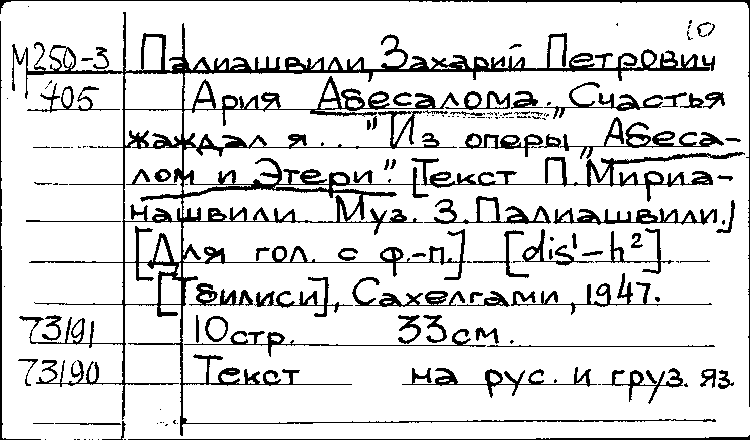 10
М250-3 Палиашвили, Захарий Петрович
405 Ария Абесалома. „Счастья
жаждал я..." Из оперы „Абеса-
лом и Этери". [Текст П. Мириа-
нашвили. Муз. З. Палиашвили.]
[Для гол. с ф.-п.] [dis¹-h²].
[Тбилиси], Сахелгами, 1947.
73191 10 стр. 33 см.
73190 Текст на рус. и груз. яз.